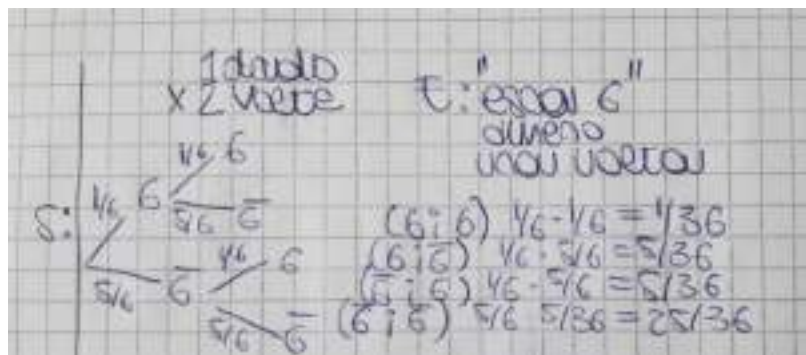 1 dado
x 2 volte
E: "esca 6"
almeno
una volta
S:
1/6 6 1/6 6
5/6 6̅
5/6 6̅ 1/6 6
5/6 6̅
(6; 6) 1/6 · 1/6 = 1/36
(6; 6̅) 1/6 · 5/6 = 5/36
(6̅; 6) 1/6 · 5/6 = 5/36
(6̅; 6̅) 5/6 5/36 = 25/36